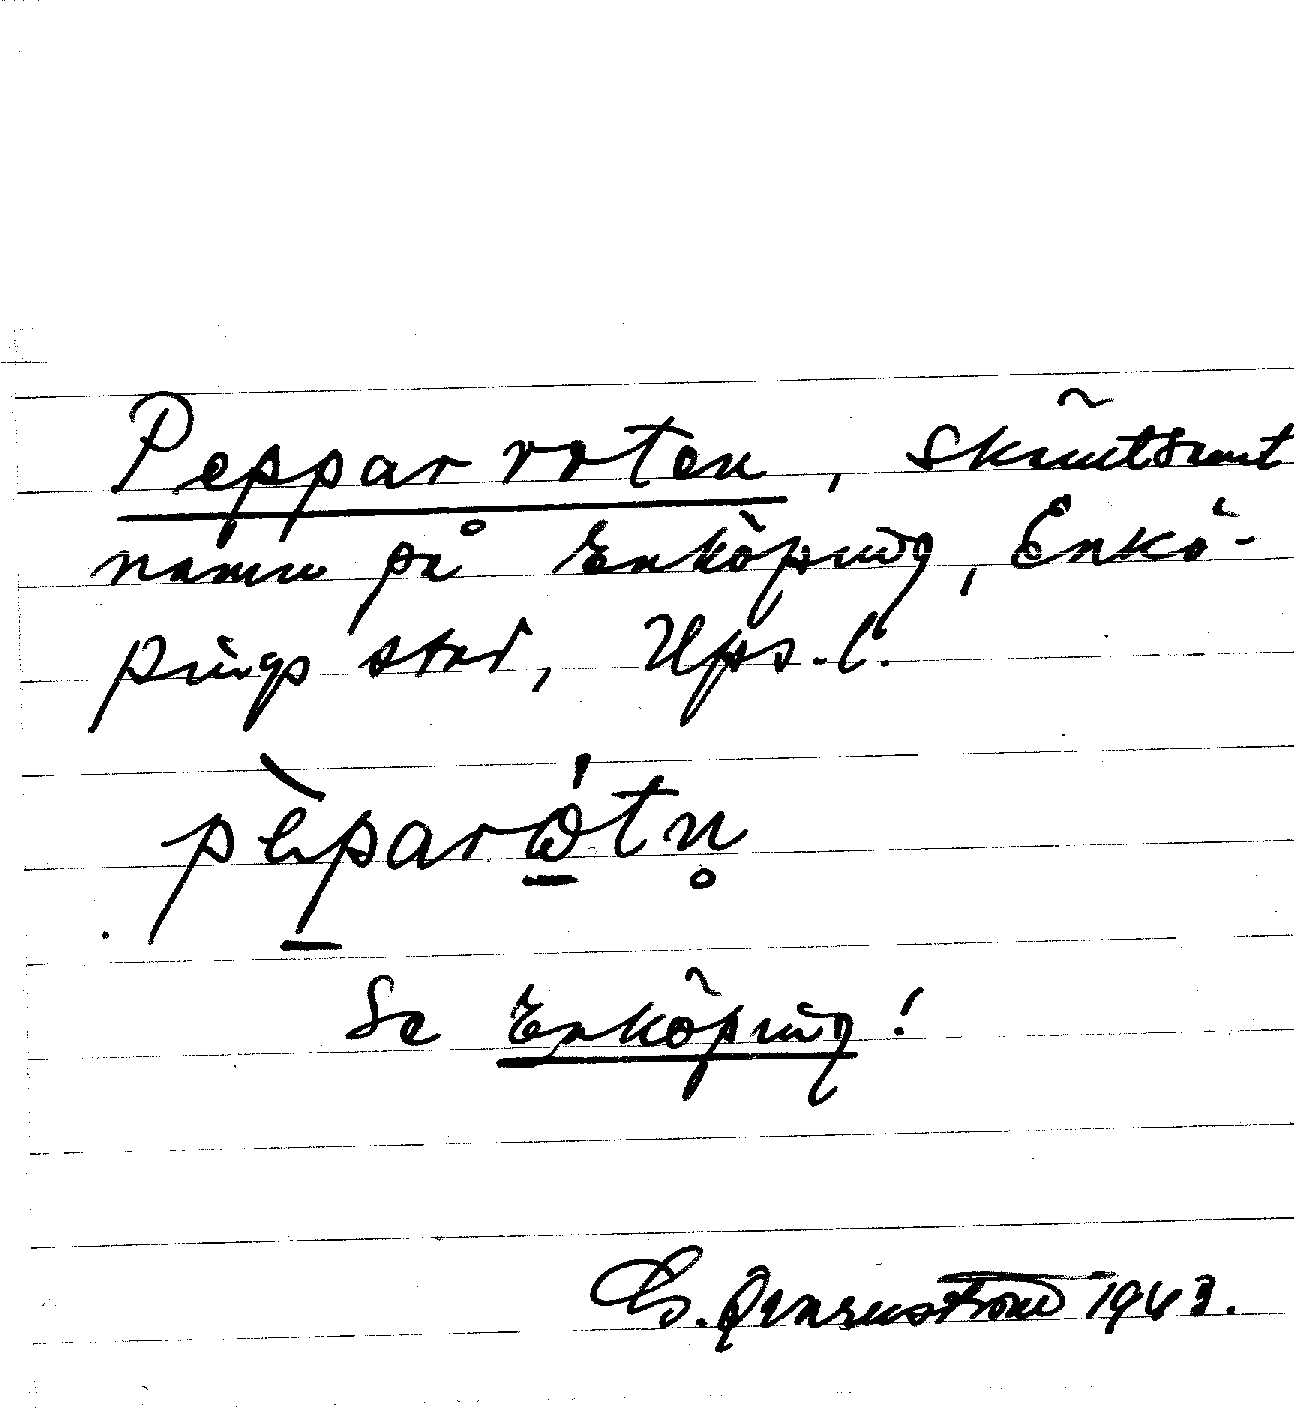 Pepparroten, skämtsamt
namn på Enköping, Enkö-
pings stad, Ups. l.
pèparótn̥
Se Enköping!
1943.